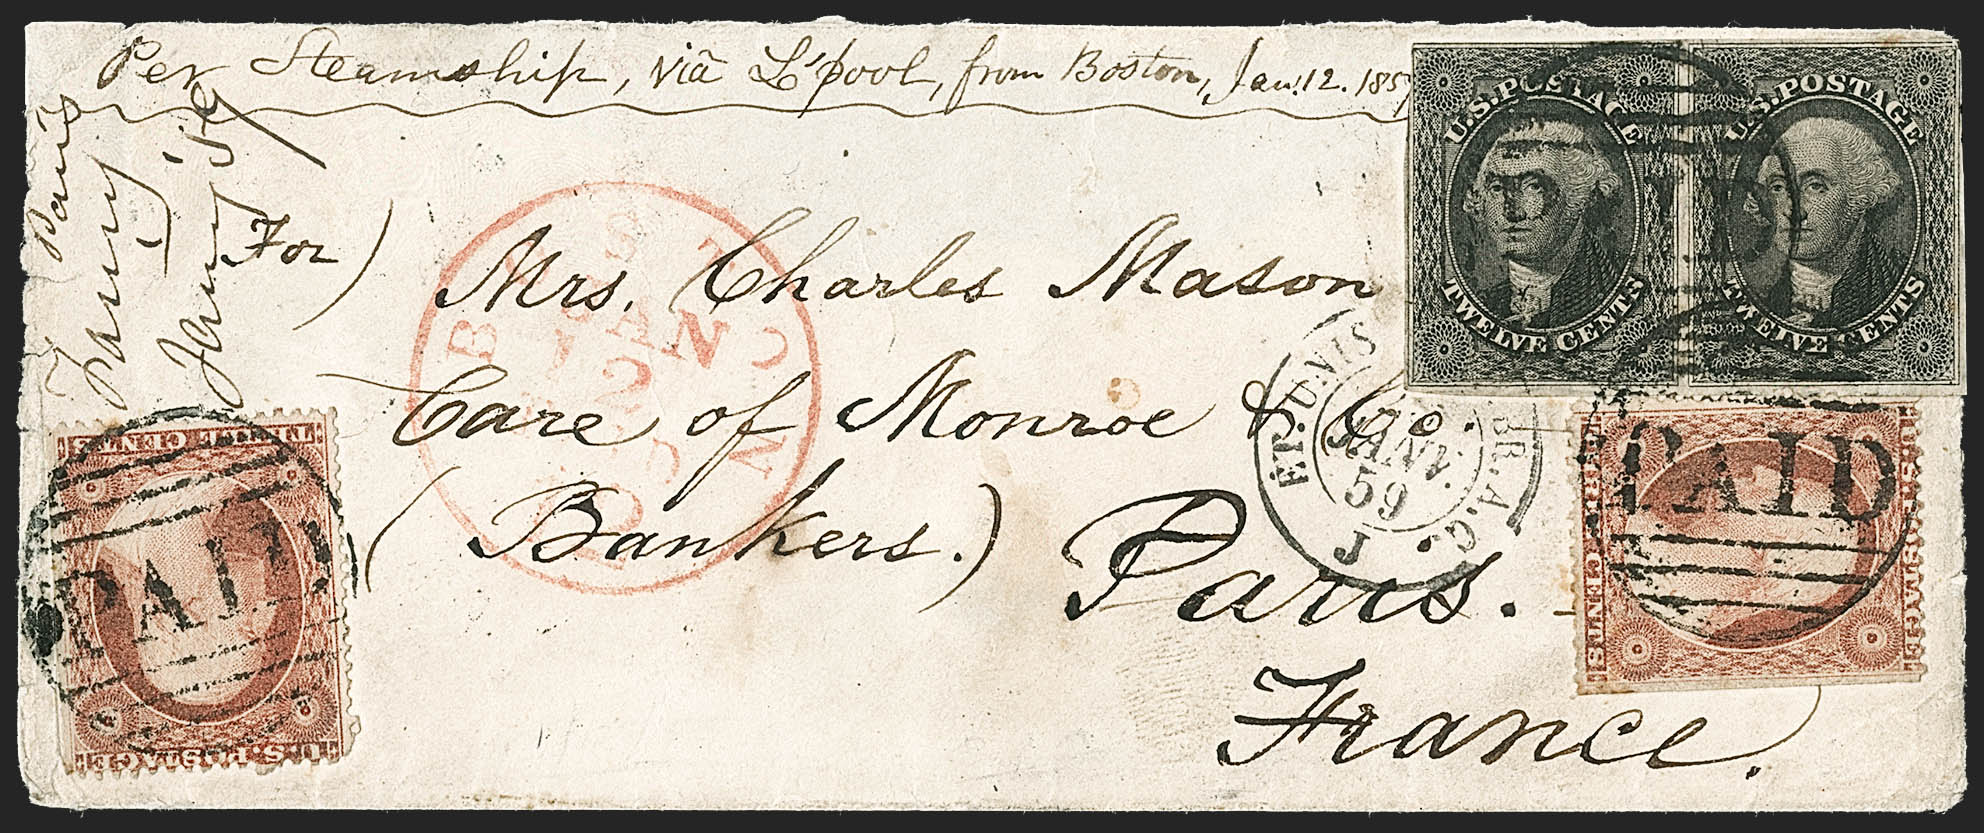 Per Steamship, via L'pool, from Boston, Jan. 12. 185
Paris
Fanny
Jany '59
For)
Mrs. Charles Mason
Care of Monroe & Co.
(Bankers.)
Paris.
France.
BOSTON
JAN
12
ET. UNIS BR. A.C.
JANV.
59
J
U.S. POSTAGE
TWELVE CENTS
U.S. POSTAGE
TWELVE CENTS
PAID
U.S. POSTAGE
THREE CENTS
PAID
U.S. POSTAGE
THREE CENTS